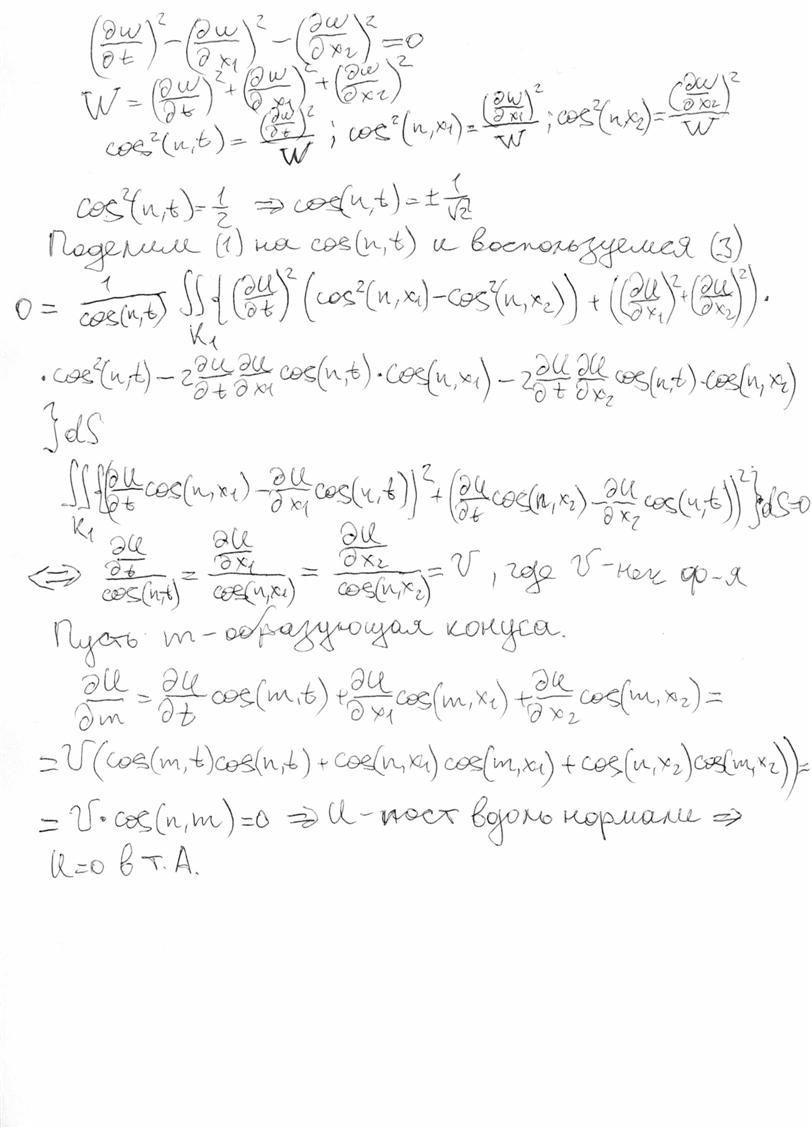 (∂w/∂t)² − (∂w/∂x₁)² − (∂w/∂x₂)² = 0
W = (∂w/∂t)² + (∂w/∂x₁)² + (∂w/∂x₂)²
cos²(n,t) = (∂w/∂t)²/W ; cos²(n,x₁) = (∂w/∂x₁)²/W ; cos²(n,x₂) = (∂w/∂x₂)²/W
cos²(n,t) = 1/2 ⇒ cos(n,t) = ± 1/√2
Поделим (1) на cos(n,t) и воспользуемся (3)
0 = 1/cos(n,t) ∬_{K₁} { (∂u/∂t)² (cos²(n,x₁) − cos²(n,x₂)) + ((∂u/∂x₁)² + (∂u/∂x₂)²) ·
· cos²(n,t) − 2 ∂u/∂t ∂u/∂x₁ cos(n,t) · cos(n,x₁) − 2 ∂u/∂t ∂u/∂x₂ cos(n,t) · cos(n,x₂)
} dS
∬_{K₁} {(∂u/∂t cos(n,x₁) − ∂u/∂x₁ cos(n,t))² + (∂u/∂t cos(n,x₂) − ∂u/∂x₂ cos(n,t))²} dS = 0
⇔ (∂u/∂t)/cos(n,t) = (∂u/∂x₁)/cos(n,x₁) = (∂u/∂x₂)/cos(n,x₂) = V, где V – нек ф-я
Пусть m – образующая конуса.
∂u/∂m = ∂u/∂t cos(m,t) + ∂u/∂x₁ cos(m,x₁) + ∂u/∂x₂ cos(m,x₂) =
= V(cos(m,t)cos(n,t) + cos(n,x₁)cos(m,x₁) + cos(n,x₂)cos(m,x₂)) =
= V · cos(n,m) = 0 ⇒ u – пост вдоль нормали ⇒
u = 0 в т. A.